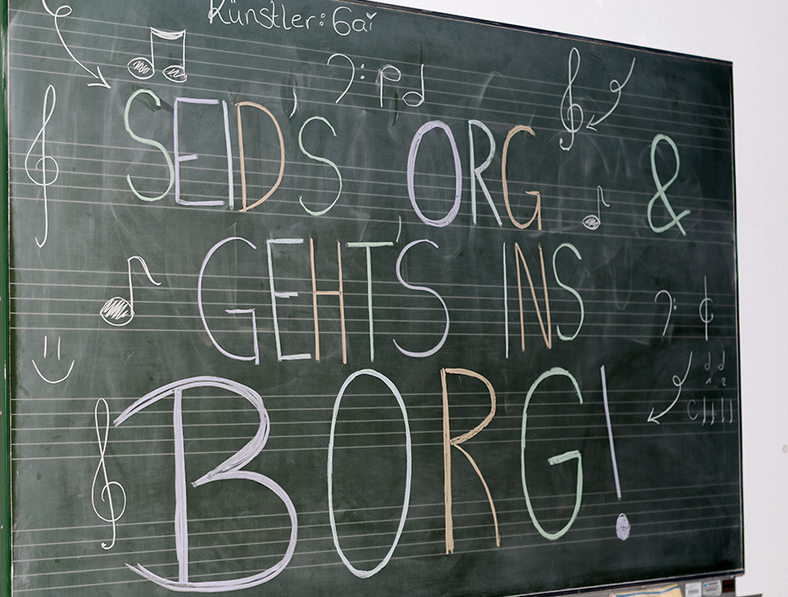 Künstler: 6ai
SEID'S ORG &
GEHT'S INS
BORG!